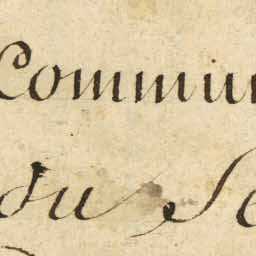 Commun
du Se